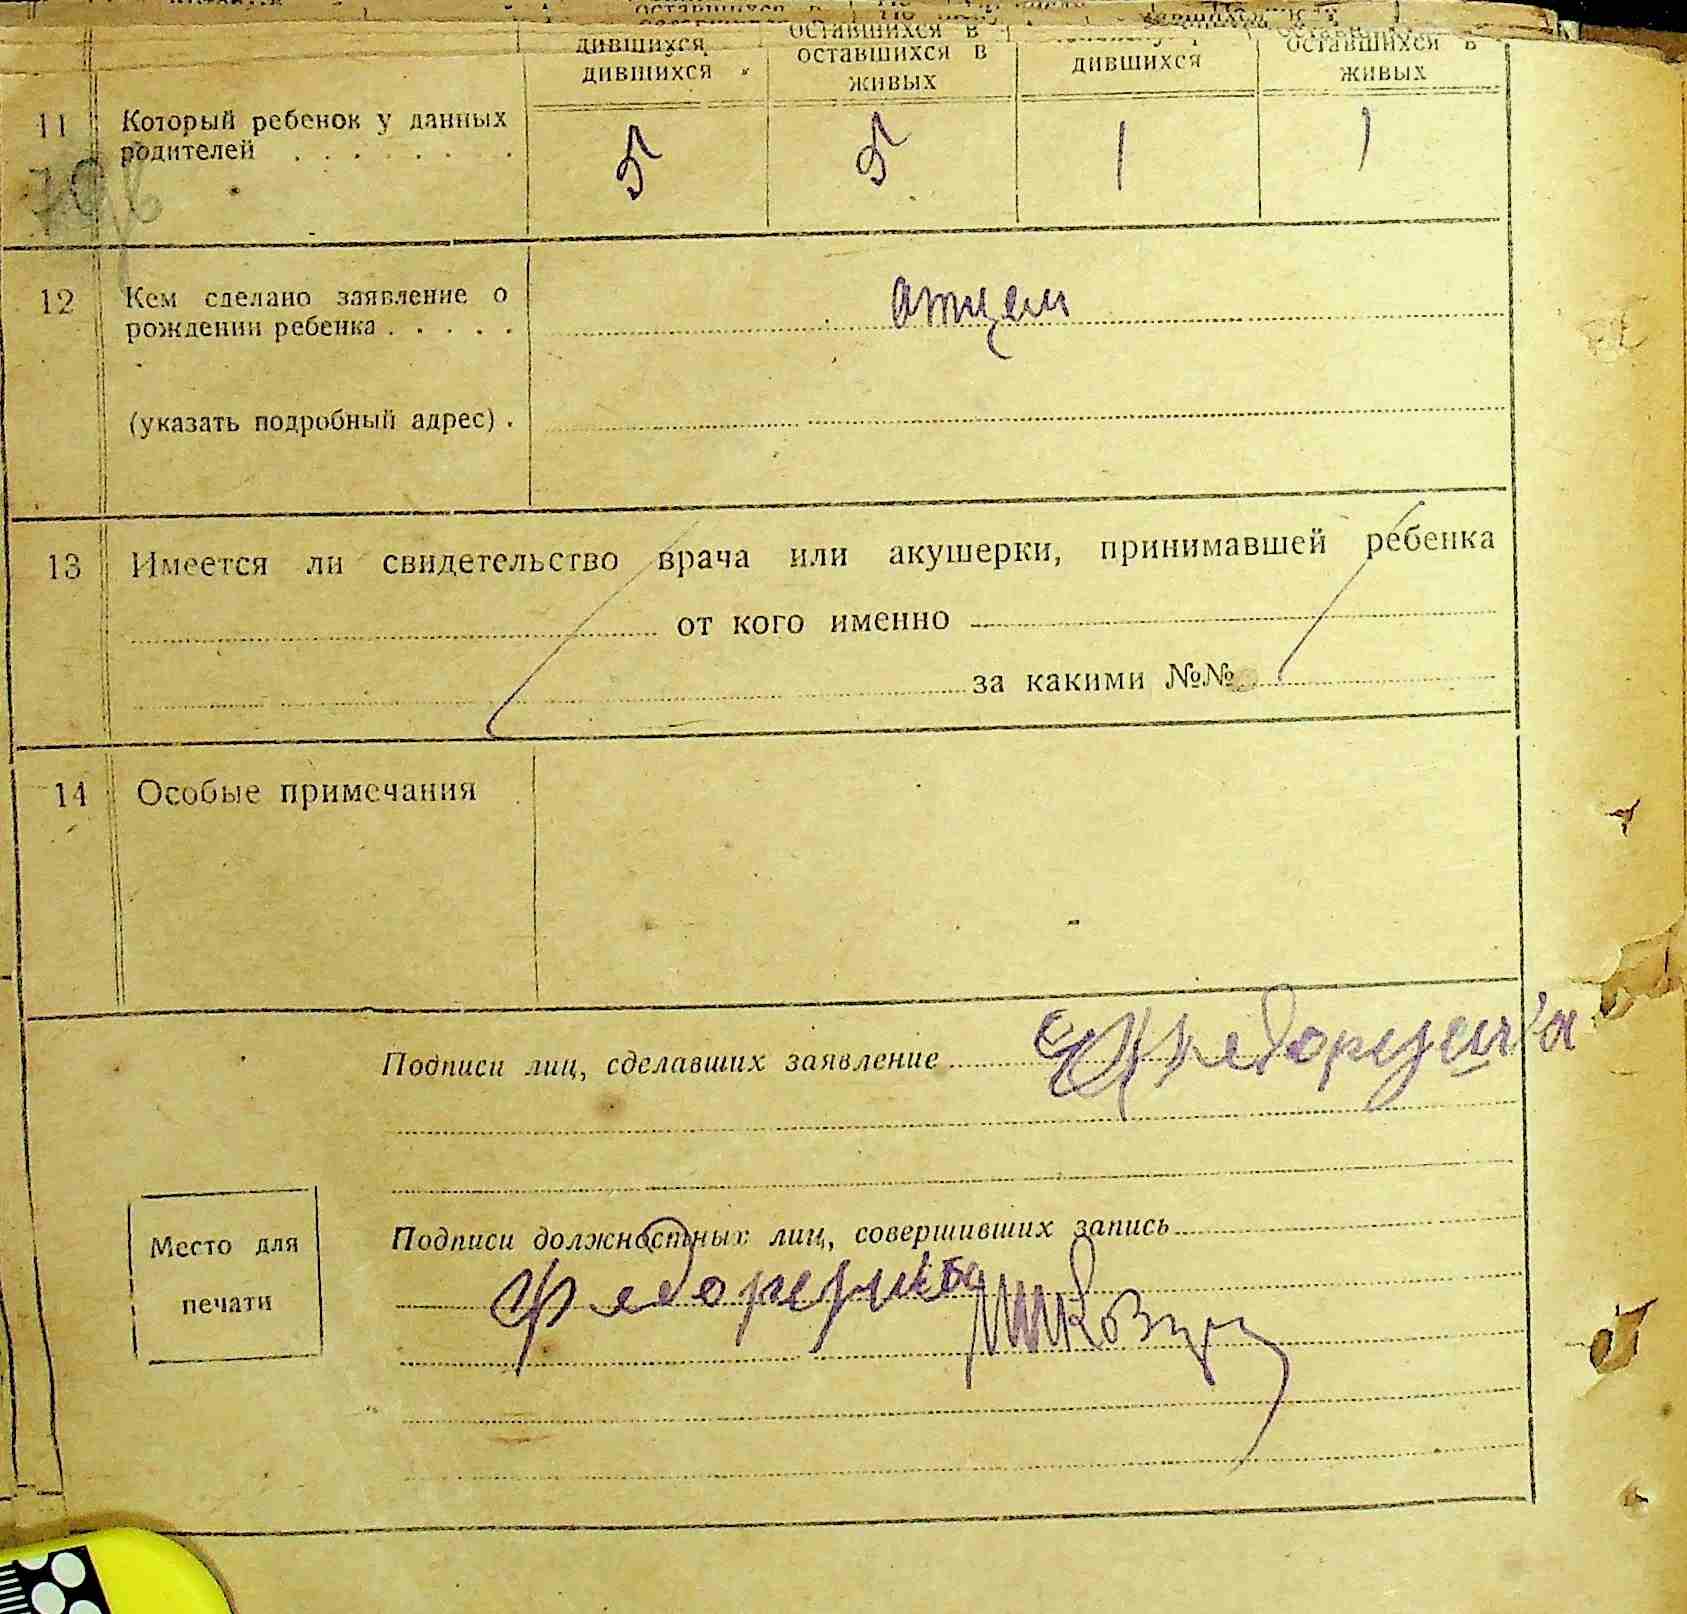 дившихся
оставшихся в
оставшихся в
дившихся
оставшихся в
живых
дившихся
живых
11 Который ребенок у данных
родителей 5 5 1 1
12 Кем сделано заявление о
рождении ребенка атцем
(указать подробный адрес)
13 Имеется ли свидетельство врача или акушерки, принимавшей ребенка
от кого именно
за какими №№
14 Особые примечания
Подписи лиц, сделавших заявление
Место для
печати
Подписи должностных лиц, совершивших запись